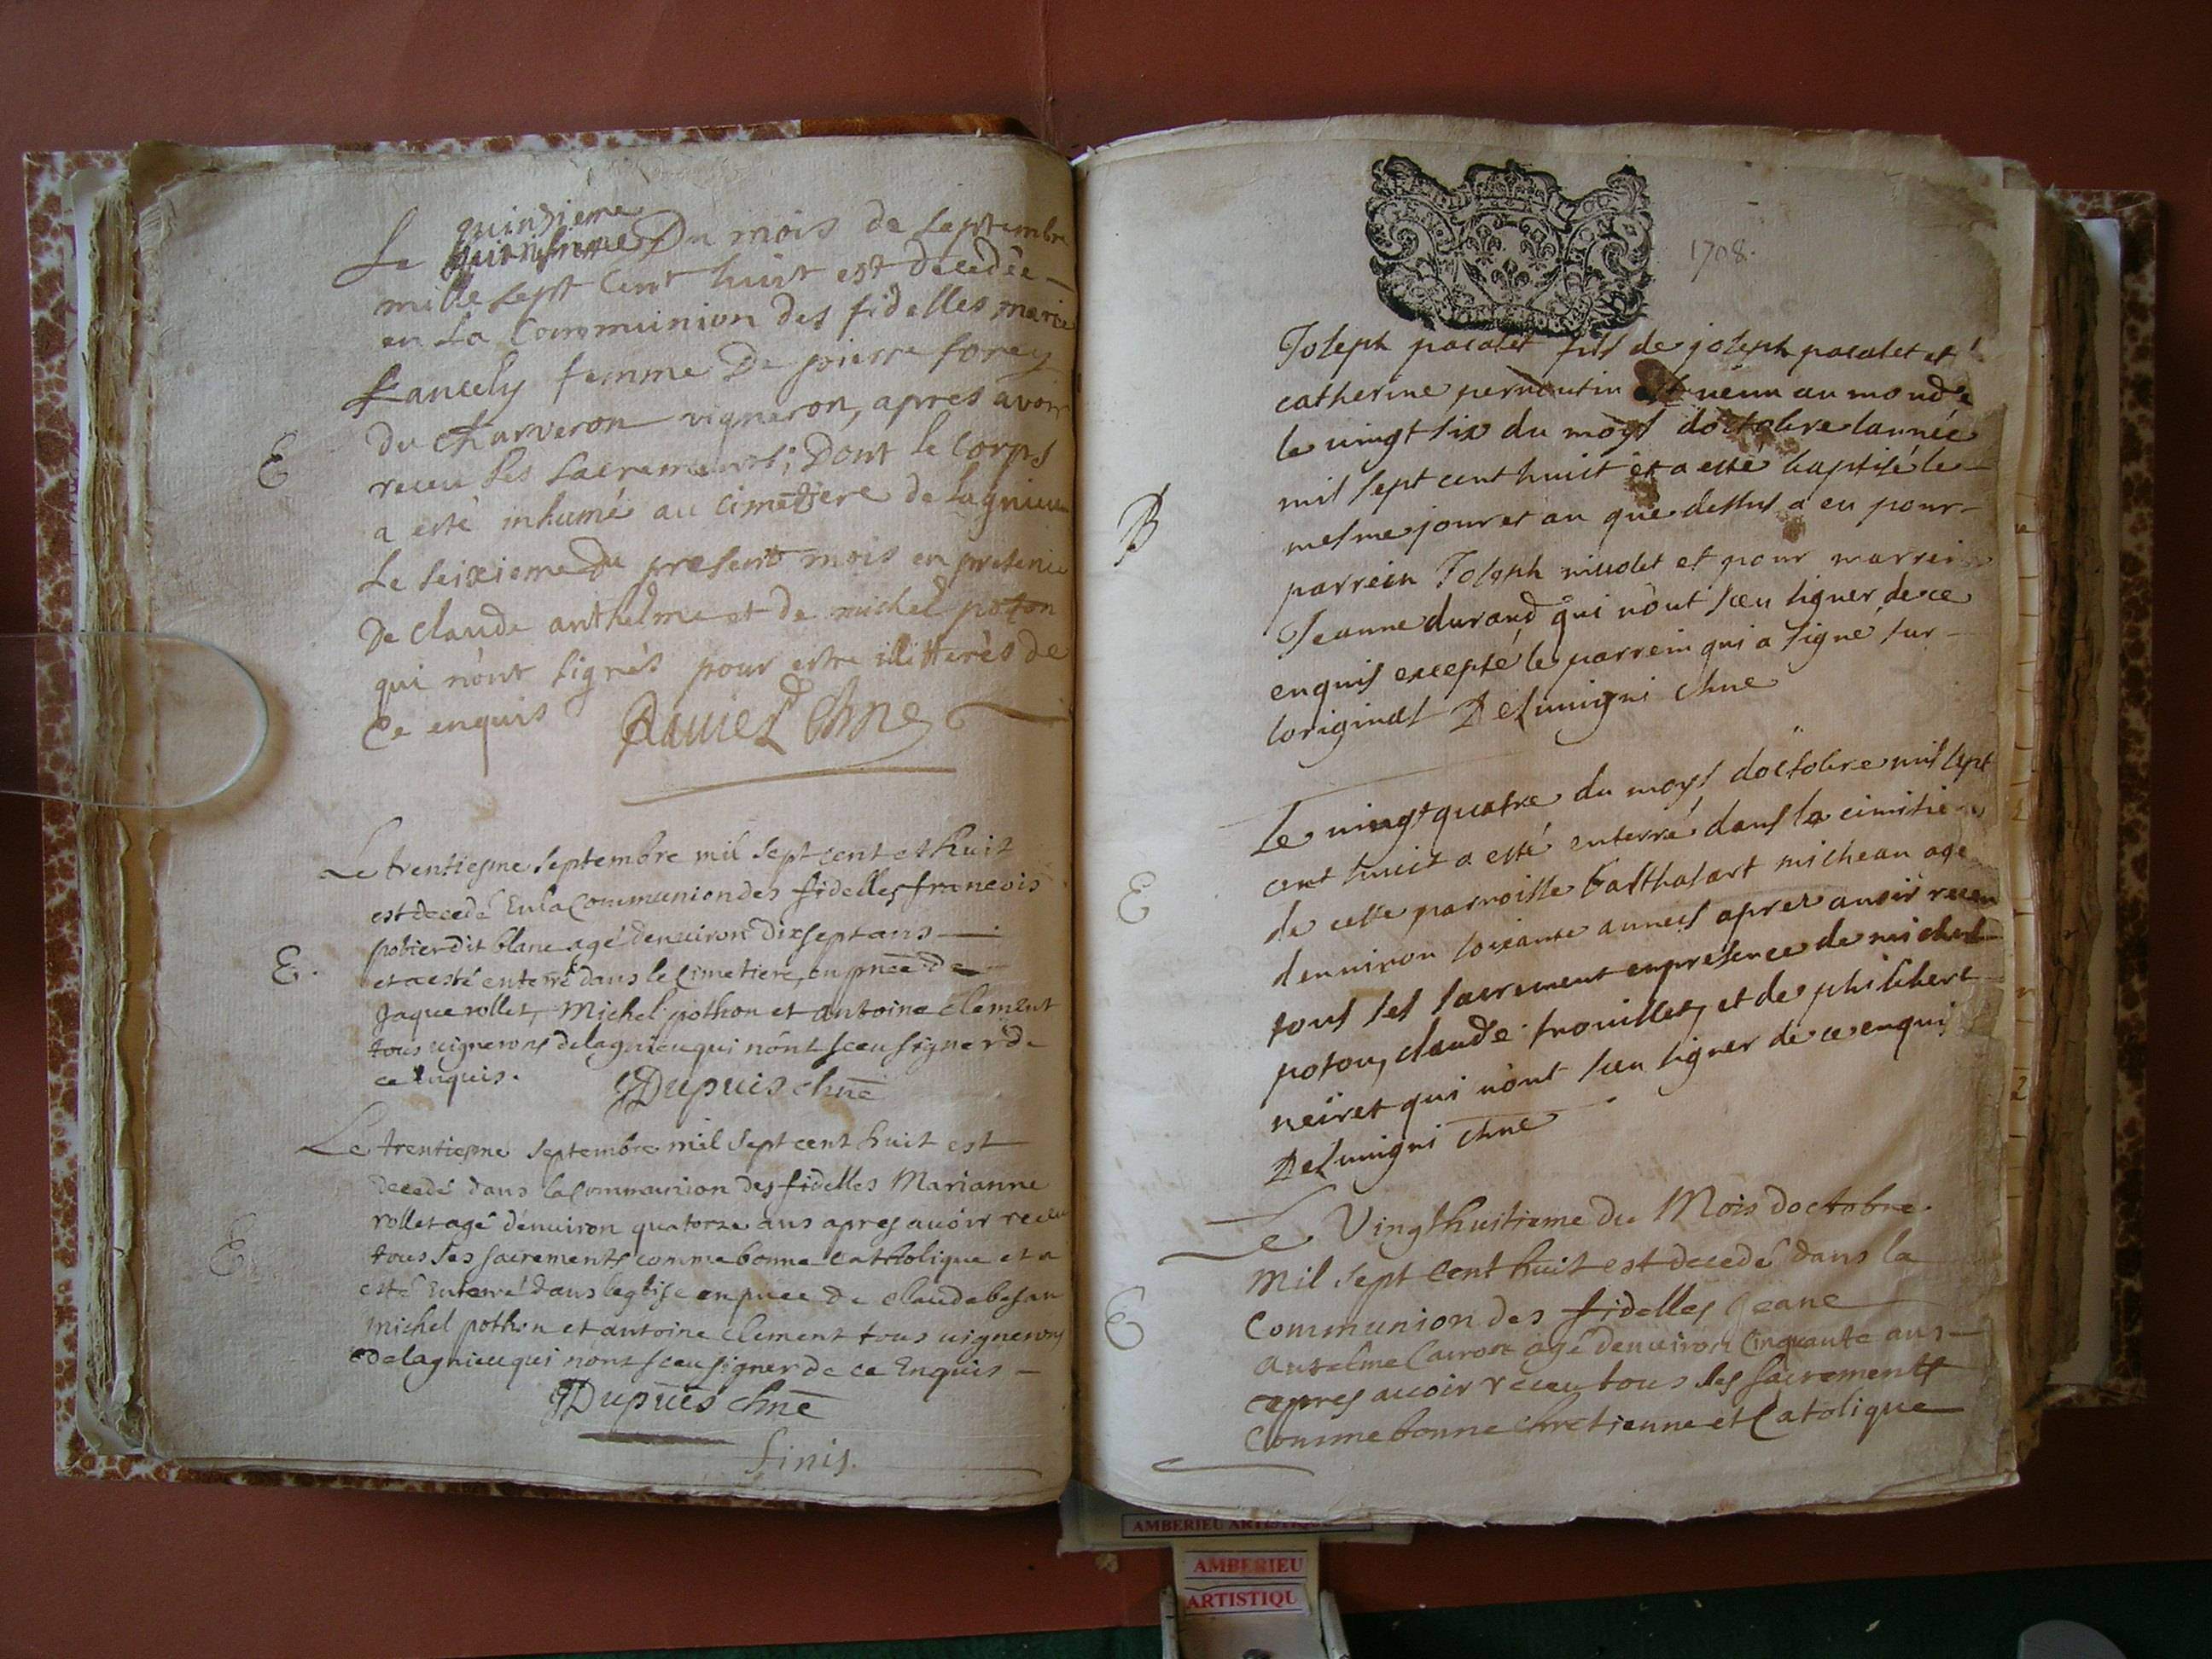 quinzieme
Le Du mois de septembre
mille sept cent huit est décedée
en La Communion des fidelles marie
Lancely femme De pierre forey
du charveron vigneron, apres avoir
E
receu ses sacrements; Dont le Corps
a esté inhumé au cimetiere de Lagnieu
Le seixieme du present mois en presence
De claude anthelme et de michel poton
qui n'ont signés pour estre illitterés de
Ce enquis Ravier Chne
Le trentiesme septembre mil sept cent et huit
est decedé En la Communion des fidelles francois
potier dit blanc agé denuiron dix sept ans
E.
et a esté enterré dans le Cimetiere, en pnce de
Jaque rollet, Michel pothon et antoine Clement
tous uignerons de lagnieu qui nont sceu signer de
ce enquis. JDupuis chne
Le trentiesme septembre mil sept cent huit est
decedé dans la Communion des fidelles Marianne
rollet agé denuiron quatorze ans apres auoir receu
E
tous ses sacrements comme bonne Catholique et a
esté Enterré dans leglise en pnce de claude besan
michel pothon et antoine Clement tous uignerons
de lagnieu qui nont sceu signer de ce Enquis
JDupuis chne
finis.
1708.
Joseph pacalet fils de joseph pacalet et
catherine pernoutin est uenu au monde
le uingt six du moys doctobre lannée
mil sept cent huit et a esté baptisé le
B
mesme jour et an que dessus a eu pour
parrein Joseph niuolet et pour marreine
Jeanne durand qui n'ont sceu signer de ce
enquis excepté le parrein qui a signé sur
loriginal Delunigni chne
Le uingt quatre du moys doctobre mil sept
cent huit a esté enterré dans le cimitiere
E
de cette parroisse balthasart micheau agé
denuiron soixante annees apres auoir receu
tous ses sacrement en presence de michel
poton, claude trouillet, et de philibert
neiret qui n'ont sceu signer de ce enqui
Delunigni chne
Le Vingt huitieme du Mois doctobre.
Mil sept Cent huit est decedé dans la
E
Communion des fidelles Jeane
anselme Cauron agé denuiron Cinquante ans
apres auoir receu tous ses sacrements
Comme bonne Chretienne et Catolique
AMBERIEU ARTISTIQUE
AMBERIEU
ARTISTIQU